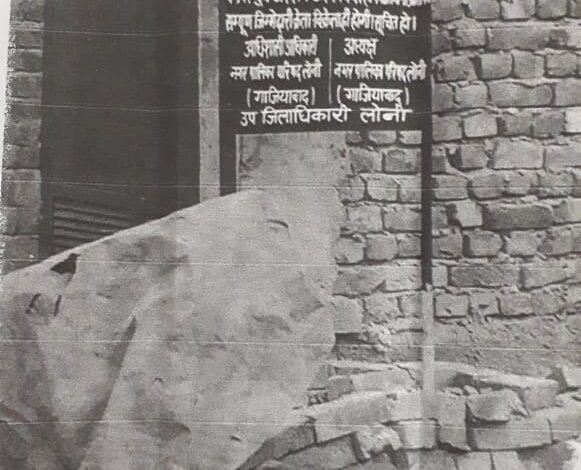 सम्पूर्ण जिम्मेदारी क्रेता विक्रेता की होगी। सूचित हो।
अधिशासी अधिकारी
नगर पालिका परिषद लोनी
(गाजियाबाद)
अध्यक्ष
नगर पालिका परिषद लोनी
(गाजियाबाद)
उप जिलाधिकारी लोनी